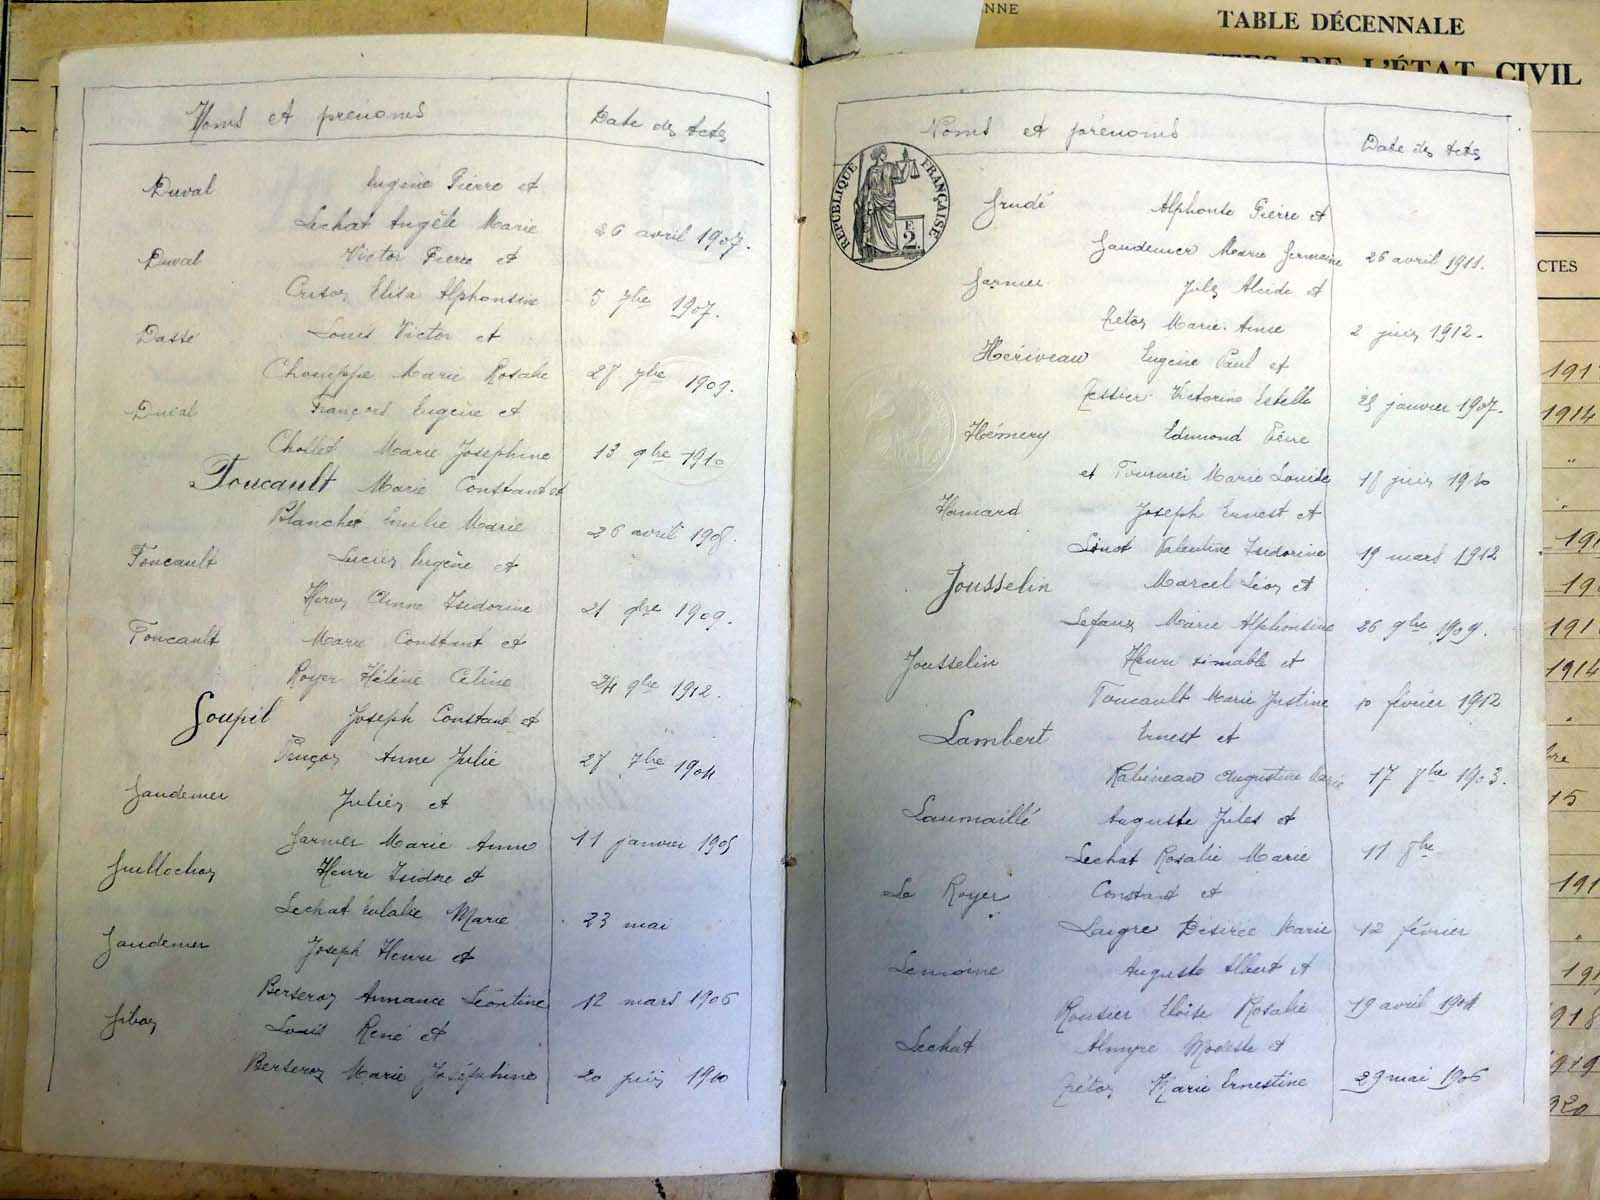 NNE
TABLE DÉCENNALE
DE L'ÉTAT CIVIL
Noms et prénoms
Date des Actes
Duval Eugène Pierre et
Lechat Angèle Marie 26 avril 1907.
Duval Victor Pierre et
Elisa Alphonsine 5 7bre 1907.
Dasse Louis Victor et
Chomppe Marie Rosalie 27 7bre 1909.
Duval François Eugène et
Chollet Marie Joséphine 13 9bre 1910
Foucault Marie Constant et
Blanchet Emilie Marie 26 avril 1908.
Foucault Lucien Eugène et
Hervé Anne Isidorine 21 9bre 1909.
Foucault Marie Constant et
Royer Hélène Céline 24 9bre 1912.
Goupil Joseph Constant et
Pinçon Anne Julie 27 7bre 1904
Gaudemer Julien et
Garnier Marie Anne 11 janvier 1905
Guillochon Henri Isidore et
Lechat Eulalie Marie 23 mai
Gaudemer Joseph Henri et
Berseron Armance Léontine 12 mars 1906
Gibon Louis René et
Berseron Marie Joséphine 20 juin 1910
Noms et prénoms
Date des Actes
RÉPUBLIQUE FRANÇAISE
E
2
Grudé Alphonse Pierre et
Gaudemer Marie Germaine 26 avril 1911.
Garnier Jules Alcide et
Marie-Anne 2 juin 1912.
Hériveau Eugène Paul et
Tessier Victorine Estelle janvier 1907.
Hémery Edmond Pierre
et Fournier Marie Louise 18 juin 1910
Homard Joseph Ernest et
Linot Valentine Isidorine 19 mars 1912
Jousselin Marcel Léon et
Lefaux Marie Alphonsine 26 9bre 1909.
Jousselin Henri Aimable et
Foucault Marie Justine 10 février 1912
Lambert Ernest et
Rabineau Augustine Marie 17 1903.
Laumaillé Auguste Jules et
Lechat Rosalie Marie 11
Le Royer Constant et
Laigre Désirée Marie 12 février
Lemoine Auguste Albert et
Rousier Eloise Rosalie 19 avril 1904
Lechat Almyre Modeste et
Marie Ernestine 29 mai 1906
CTES
191
1914
191
1914
15
191
918
1919
920